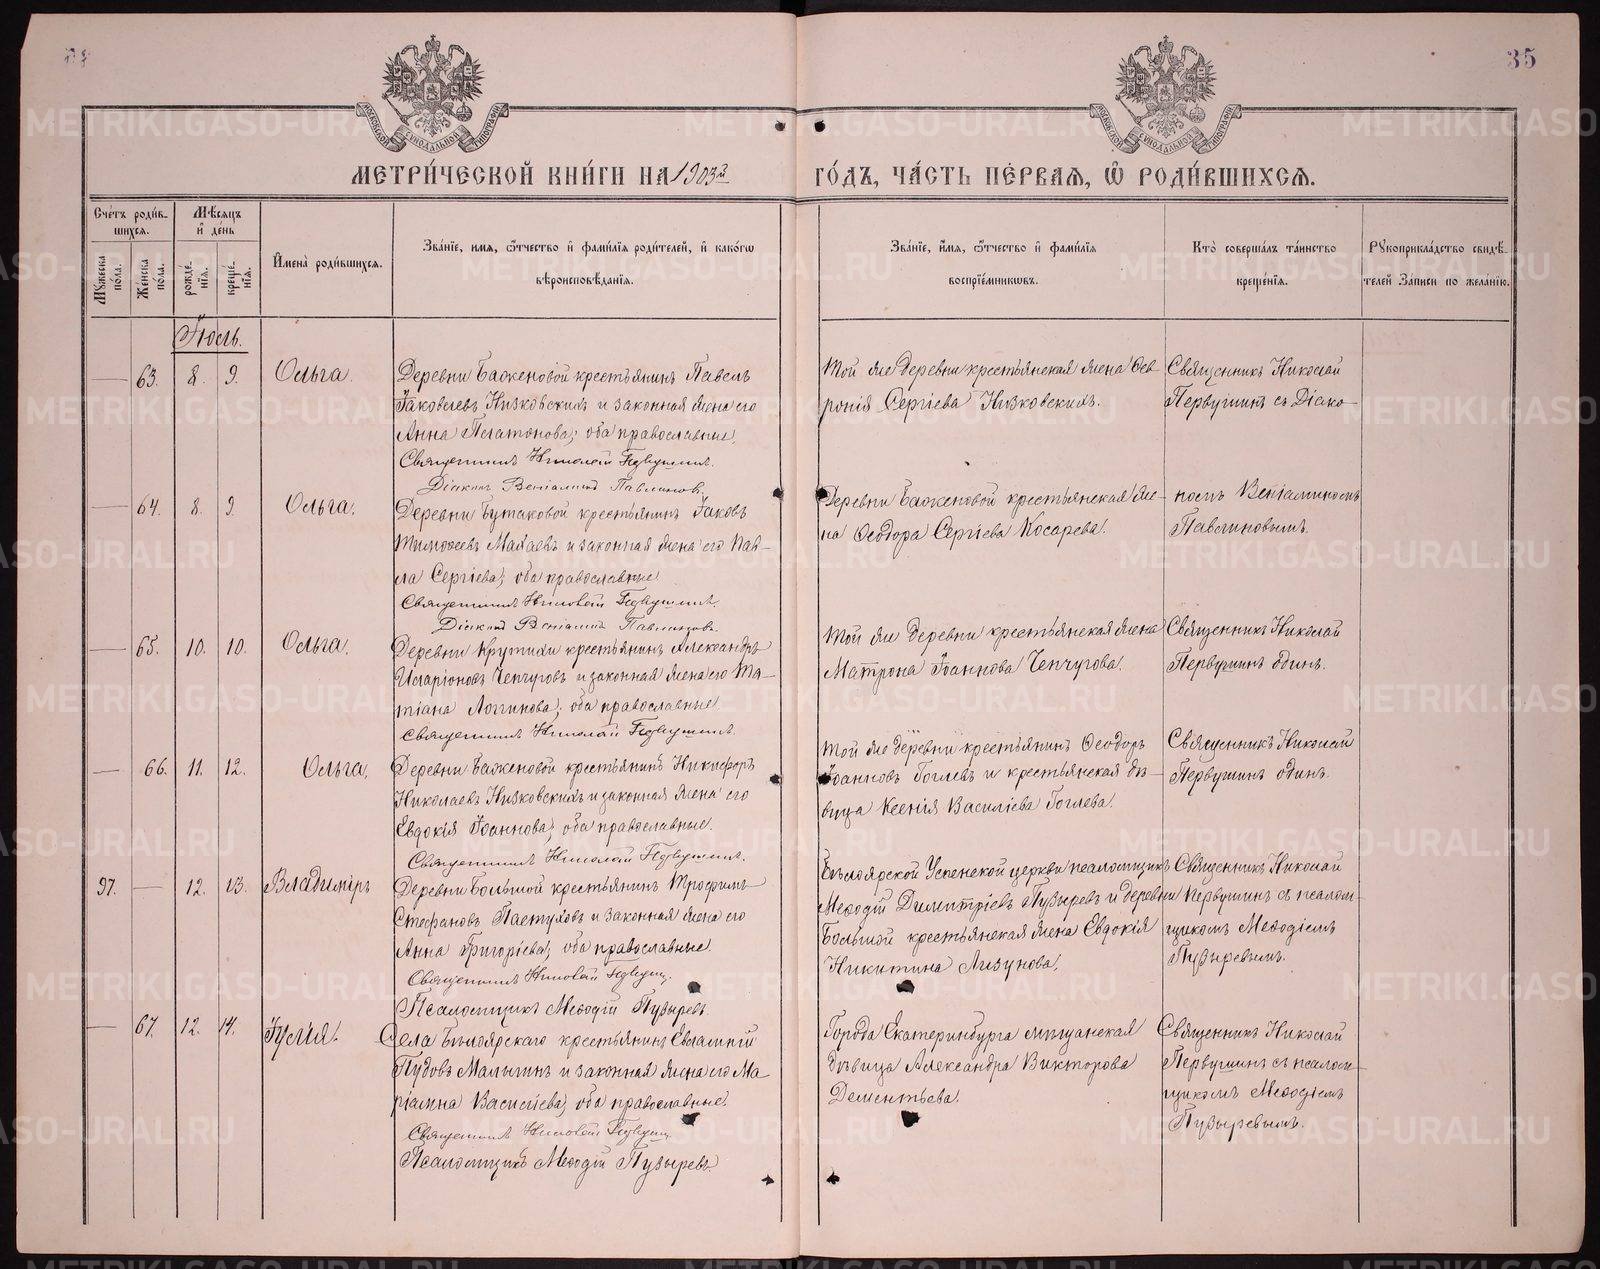 35
МЕТРИ́ЧЕСКОЙ КНИ́ГИ НА 1903й ГО́ДЪ, ЧА́СТЬ ПЕ́РВАЯ, Ѡ РОДИ́ВШИХСЯ.
Сче́тъ роди́в-
шихся.
Му́жеска по́ла.
Же́нска по́ла.
Мѣ́сяцъ и де́нь
рожде́нїя.
креще́нїя.
И҆мена̀ роди́вшихся.
Зва́нїе, и҆́мя, ѻ҆́тчество и҆ фами́лїя роди́телей, и҆ како́гѡ
вѣроисповѣ́данїя.
Зва́нїе, и҆́мя, ѻ҆́тчество и҆ фами́лїя
воспрїе́мникѡвъ.
Кто̀ соверша́лъ та́инство
креще́нїя.
Рꙋкоприкла́дство свидѣ́-
телей за́писи по жела́нїю.
Іюль.
63. 8. 9. Ольга.
Деревни Баженовой крестьянинъ Павелъ
Іаковлевъ Низковскихъ и законная жена его
Анна Платонова; оба православные.
Священникъ Николай Первушинъ.
Діаконъ Веніаминъ Павлиновъ.
Той же деревни крестьянская жена Фев-
ронія Сергіева Низковскихъ.
Священникъ Николай
Первушинъ съ Діако-
64. 8. 9. Ольга.
Деревни Бутаковой крестьянинъ Іаковъ
Тимоѳеевъ Малаевъ и законная жена его Пав-
ла Сергіева; оба православные
Священникъ Николай Первушинъ.
Діаконъ Веніаминъ Павлиновъ.
Деревни Баженовой крестьянская же-
на Ѳеодора Сергіева Косарева.
номъ Веніаминомъ
Павлиновымъ.
65. 10. 10. Ольга.
Деревни Крутихи крестьянинъ Александръ
Иларіоновъ Чепчуговъ и законная жена его Та-
тіана Логгинова; оба православные.
Священникъ Николай Первушинъ.
Той же деревни крестьянская жена
Матрона Іоаннова Чепчугова.
Священникъ Николай
Первушинъ одинъ.
66. 11. 12. Ольга.
Деревни Баженовой крестьянинъ Никифоръ
Николаевъ Низковскихъ и законная жена его
Евдокія Іоаннова; оба православные.
Священникъ Николай Первушинъ.
Той же деревни крестьянинъ Ѳеодоръ
Іоанновъ Гоглевъ и крестьянская дѣ-
вица Ксенія Василіева Гоглева.
Священникъ Николай
Первушинъ одинъ.
97. 12. 13. Владиміръ
Деревни Большой крестьянинъ Трофимъ
Стефановъ Пастуховъ и законная жена его
Анна Григоріева; оба православные.
Священникъ Николай Первуш.
Псаломщикъ Меѳодій Пузыревъ
Бѣлоярской Успенской церкви псаломщикъ
Меѳодій Димитріевъ Пузыревъ и деревни
Большой крестьянская жена Евдокія
Никитина Лизунова.
Священникъ Николай
Первушинъ съ псалом-
щикомъ Меѳодіемъ
Пузыревымъ.
67. 12. 14. Іулія.
Села Бѣлоярскаго крестьянинъ Евлампій
Пудовъ Малыгинъ и законная жена его Ма-
ріамна Василіева; оба православные.
Священникъ Николай Первуш.
Псаломщикъ Меѳодій Пузыревъ.
Города Екатеринбурга мѣщанская
дѣвица Александра Викторова
Дементьева.
Священникъ Николай
Первушинъ съ псалом-
щикомъ Меѳодіемъ
Пузыревымъ.
METRIKI.GASO-URAL.RU